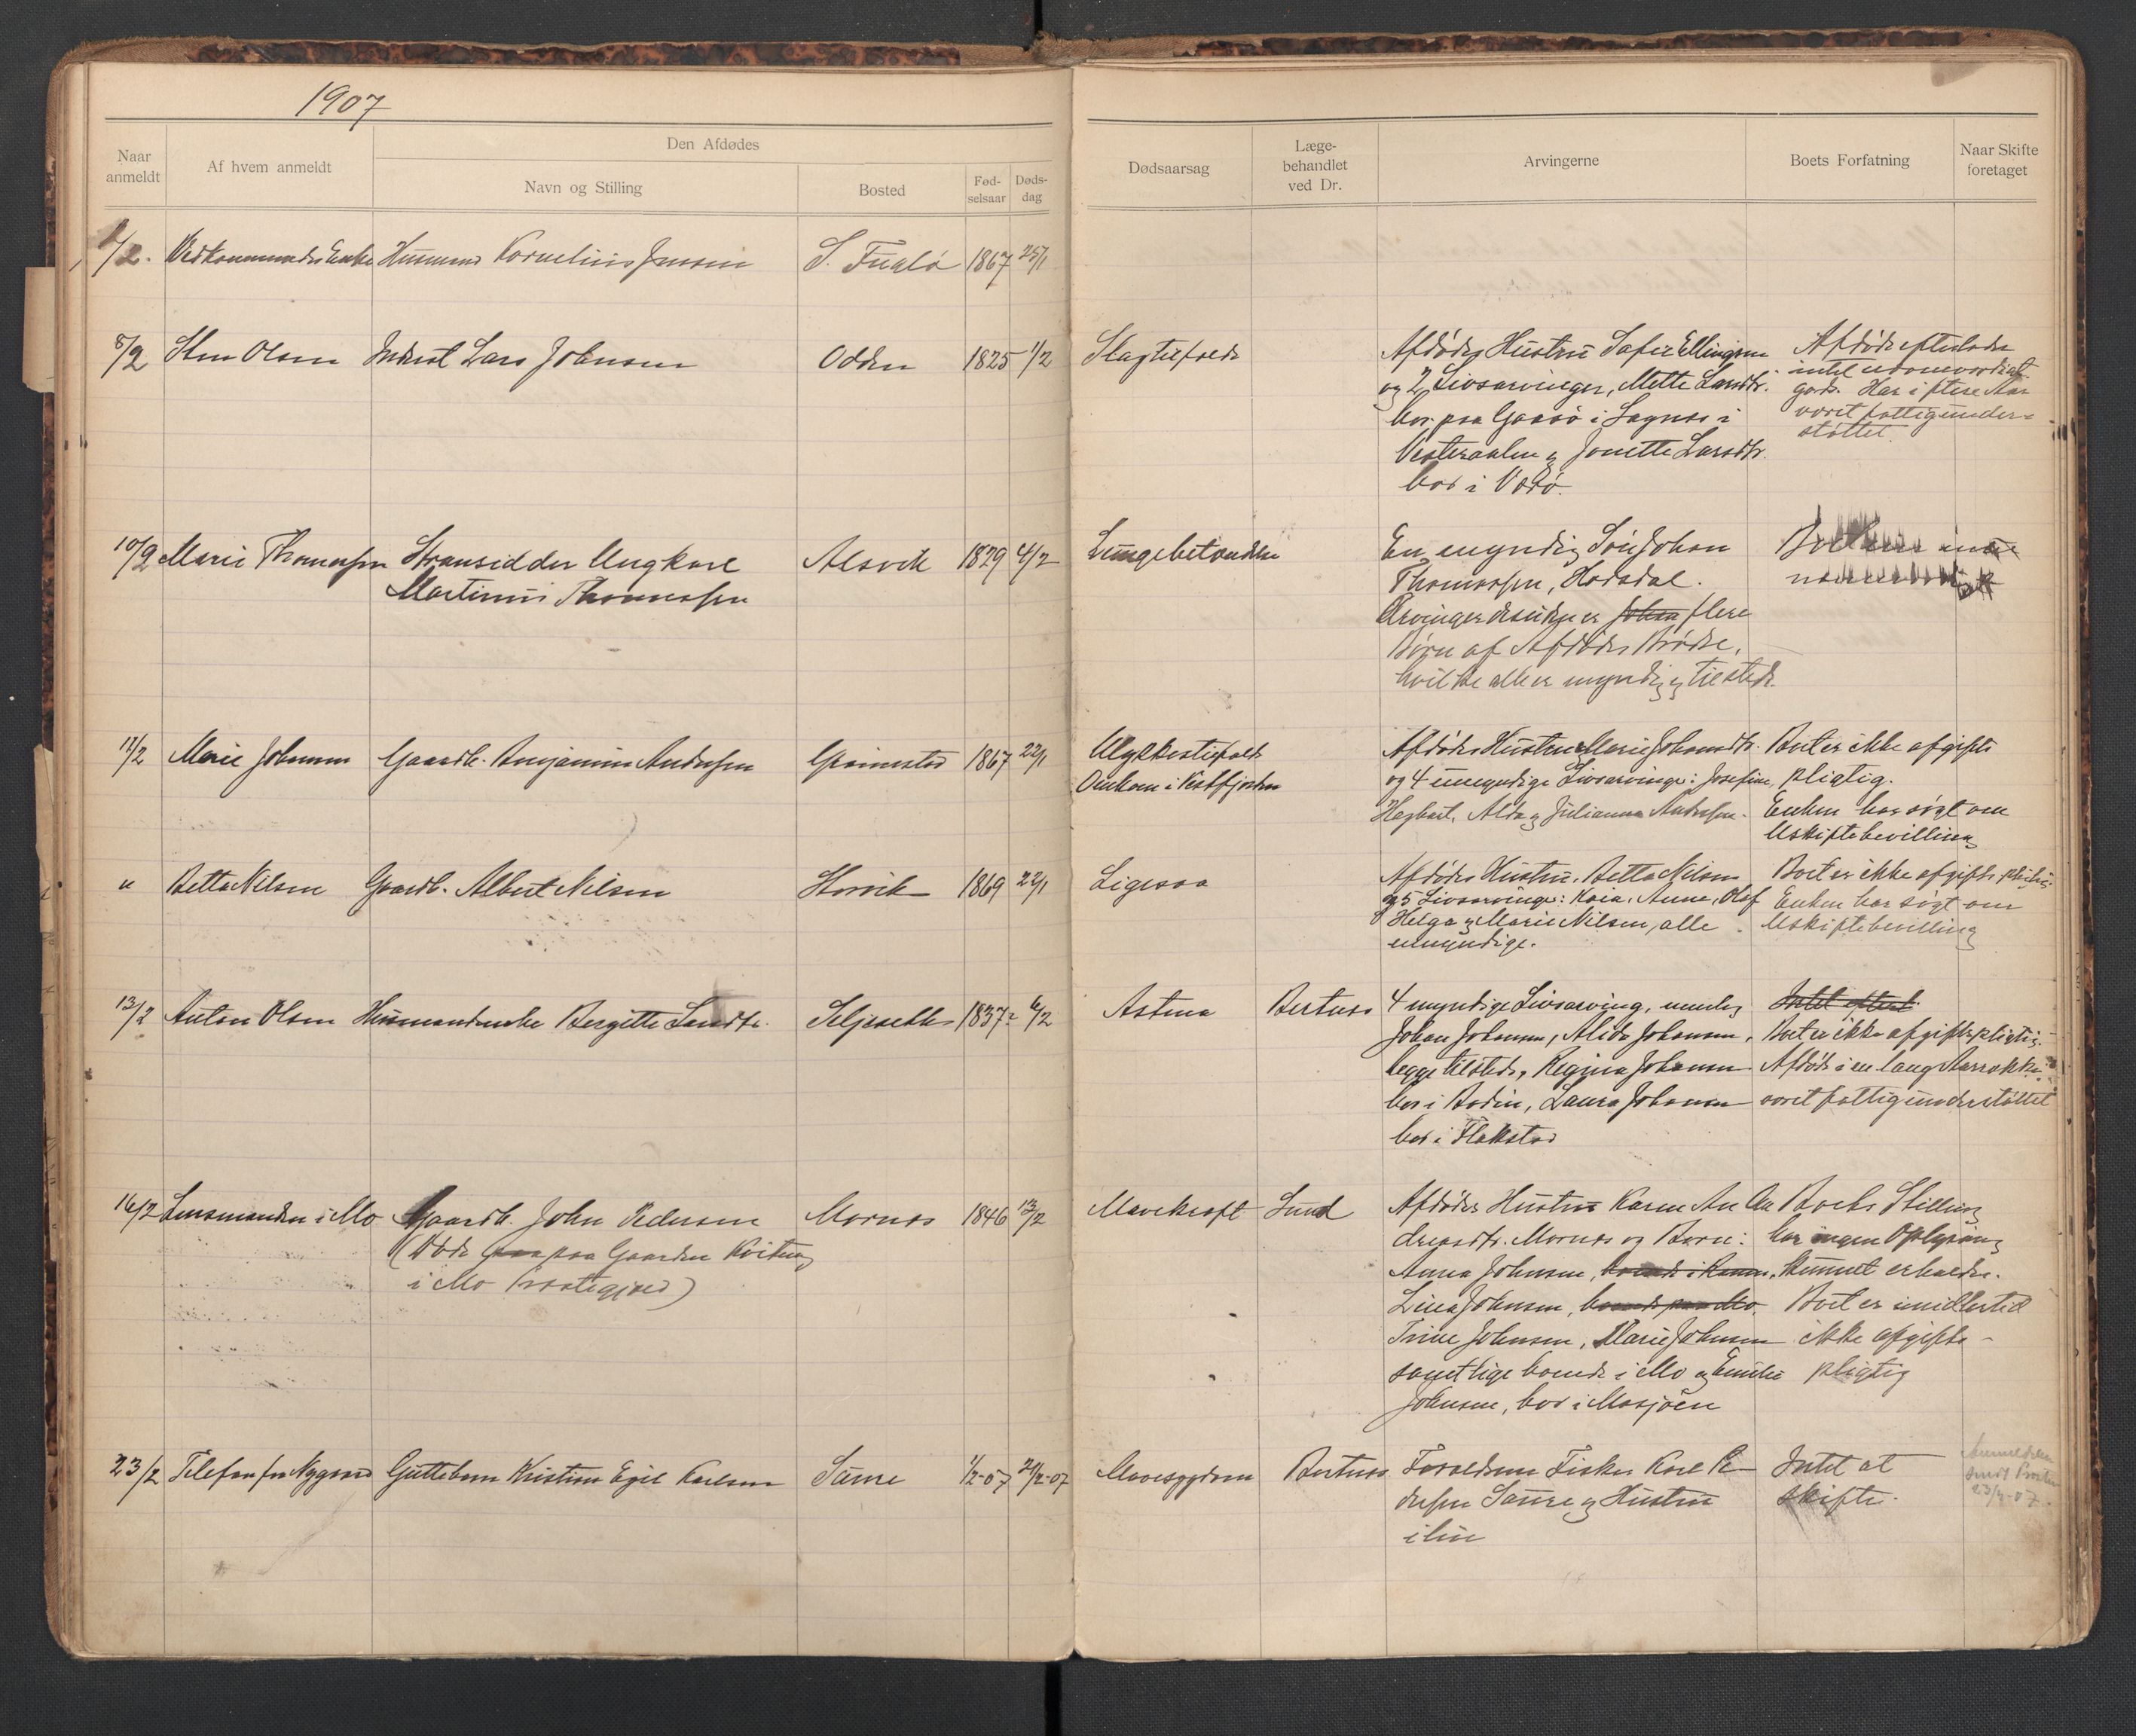 1907
Naar anmeldt
Af hvem anmeldt
Den Afdødes
Navn og Stilling
Bosted
Fød-selsaar
Døds-dag
Dødsaarsag
Læge-behandlet ved Dr.
Arvingerne
Boets Forfatning
Naar Skifte foretaget
/2. Vedkommendes Enke Husmand Kornelius Jensen S. Fuglø 1867 25/1
8/2 Sten Olsen Inderst Lars Johnsen Odden 1825 1/2 Slagtilfælde
Afdødes Hustru Safie Ellingsen
og 2 Livsarvinger, Mette Larsdtr.
bor paa Gaasø i Lognes i
Vesteraalen og Jonette Larsdtr.
bor i Værø.
Afdøde efterlader
intet nævneværdigt
gods. Har i flere Aar
været fattigunder=
støttet.
10/2 Marie Thomassen Strandsidder Ungkarl
Martinus Thomassen
Alsvik 1829 4/2 Lungebetændelse
En myndig Søn Johan
Thomassen, Hodsdal.
Arvinger desuden er Johan flere
Børn af Afdødes Brødre,
hvilke alle er myndig og tilstede.
12/2 Marie Johnsen Gaardb. Benjamin Andersen Grimstad 1867 22/1 Ulykkestilfælde
Omkom i Vestfjorden
Afdødes Hustru Marie Johansdtr.
og 4 umyndige Livsarvinge: Josefine,
Hegbart, Alda og Julianna Andersen.
Boet er ikke afgifts
pligtig.
Enken har søgt om
Uskiftebevilling
" Betta Nilsen Gaardb. Albert Nilsen Storvik 1869 22/1 Ligesaa
Afdødes Hustru, Betta Nilsen
og 5 Livsarvinge: Kaia, Anna, Olaf
Helga og Marie Nilsen, alle
umyndige.
Boet er ikke afgifts pligtig.
Enken har søgt om
Uskiftebevilling
13/2 Anton Olsen Husmandsenke Bergitte Larsdtr. Seljeseth 1837 6/2 Astma Bertnæs
4 myndige Livsarving, nemlig
Johan Johansen, Alida Johansen,
begge tilstede, Regina Johansen
bor i Bodin, Laura Johansen
bor i Flakstad
Intet efterl.
Boet er ikke afgiftspligtig.
Afdøde i en lang Aarrække
været fattigunderstøttet
16/2 Lensmanden i Mo Gaardb. John Pedersen
(Døde paa Gaarden Kvitneng
i Mo Prestegjeld)
Mornes 1846 13/2 Mavekræft Lund
Afdødes Hustru Karen An
dreasdtr. Mornes og Børn:
Anna Johnsen,
Lina Johnsen, boende paa Mo.
Trine Johnsen, Marie Johnsen
samtlige boende i Mo og Emilie
Johnsen, bor i Mosjøen
Om Boets Stilling
har ingen Oplysning
kunnet erholdes.
Boet er imidlertid
ikke afgifts-
pligtig
23/2 Telefon fra Nygaard Guttebarn Kristian Egil Karlsen Saure 1/2-07 21/2-07 Mavesygdom Bertnæs
Forældrene Fisker Karl Pe
dersen Saure og Hustru
ilive
Intet at
skifte.
Anmeldelsen
sendt
23/4-07.